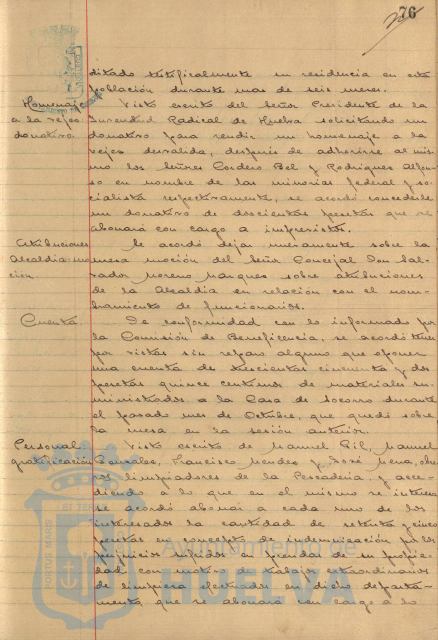 76
ditado testificalmente su residencia en esta
población durante mas de seis meses.
Homenaje a la vejez donativo.
Visto escrito del Señor Presidente de la
Juventud Radical de Huelva solicitando un
donativo para rendir un homenaje a la
vejez desvalida, después de adherirse al mis-
mo los Señores Cordero Bel y Rodriguez Alfon-
so en nombre de las minorias federal y so-
cialista respectivamente, se acordó concederle
un donativo de doscientas pesetas que se
abonará con cargo a imprevistos.
Atribuciones Alcaldia mocion.
Se acordó dejar nuevamente sobre la
mesa moción del Señor Concejal Don Sal-
vador Moreno Marquez sobre atribuciones
de la Alcaldia en relación con el nom-
bramiento de funcionarios.
Cuenta
De conformidad con lo informado por
la Comisión de Beneficencia, se acordó tener
por vistas sin reparo alguno que oponer
una cuenta de trescientas cincuenta y dos
pesetas quince centimos de materiales su-
ministrados a la Casa de Socorro durante
el pasado mes de Octubre, que quedó sobre
la mesa en la sesión anterior.
Personal gratificación
Visto escrito de Manuel Gil, Manuel
Gonzalez, Francisco Mendez y José Mena,
limpiadores de la Pescaderia, y acce-
diendo a lo que en el mismo se interesa
se acordó abonar a cada uno de los
interesados la cantidad de setenta y cinco
pesetas en concepto de indemnización por los
perjuicios sufridos en prendas de su propie-
dad con motivo de trabajos extraordinarios
de limpieza efectuados en dicho departa-
mento, que se abonará con cargo a lo
Ayuntamiento de
HUELVA
PORTUS MARIS
ET TERRAE